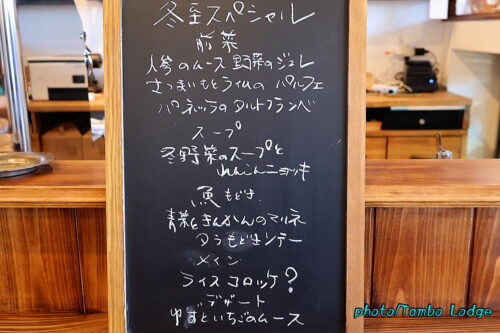 冬至スペシャル
前菜
人参のムース 野菜のジュレ
さつまいもとライムの パルフェ
パネッラのタルトフランベ
スープ
冬野菜のスープと
れんこんニョッキ
魚もどき
青菜ときんかんのマリネ
うもどきソテー
メイン
ライスコロッケ?
デザート
ゆずといちごのムース
photo/Tambo Lodge